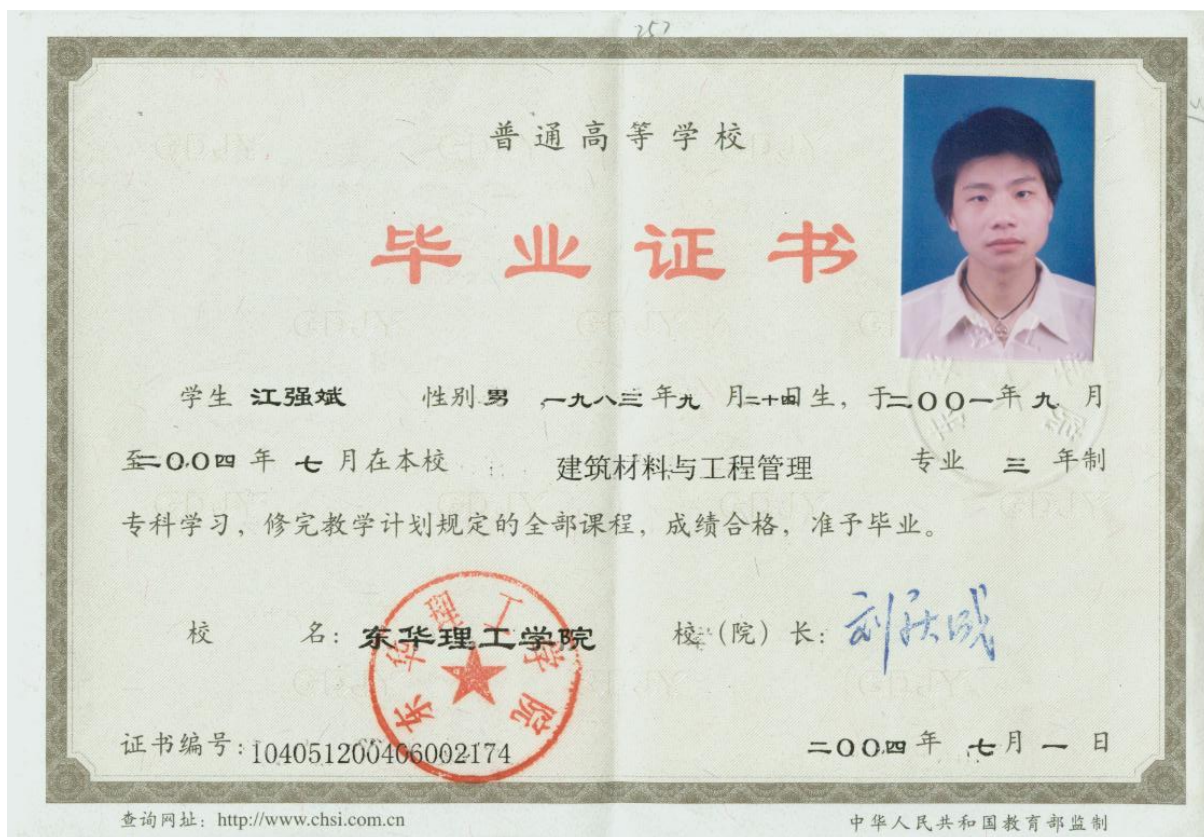 257
普通高等学校
毕业证书
学生 江强斌 性别 男 ,一九八三年九 月二十四日生, 于二00一年 九 月
至二00四 年 七 月在本校 建筑材料与工程管理 专业 三 年制
专科学习, 修完教学计划规定的全部课程, 成绩合格, 准予毕业。
校 名: 东华理工学院 校 (院) 长:
东华理工学院
证书编号: 104051200406002174 二00四 年 七月 一 日
查询网址: http://www.chsi.com.cn 中华人民共和国教育部监制